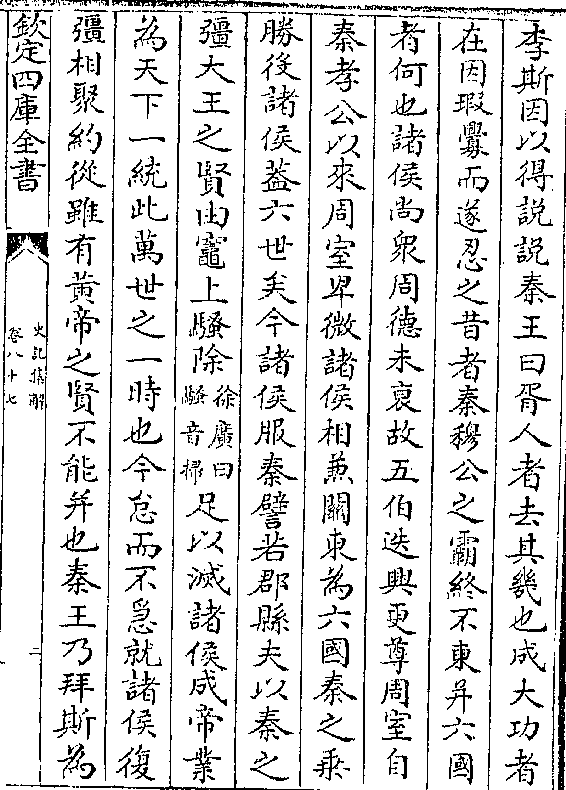 李斯因以得説説秦王曰胥人者去其幾也成大功者
在因瑕釁而遂忍之昔者秦穆公之霸終不東并六國
者何也諸侯尚衆周德未衰故五伯迭興更尊周室自
秦孝公以來周室卑微諸侯相兼關東為六國秦之乗
勝役諸侯葢六世矣今諸侯服秦譬若郡縣夫以秦之
彊大王之賢由竈上騷除徐廣曰騷音掃足以滅諸侯成帝業
為天下一統此萬世之一時也今怠而不急就諸侯復
彊相聚約從雖有黄帝之賢不能并也秦王乃拜斯為
欽定四庫全書
史記集解
卷八十七
二